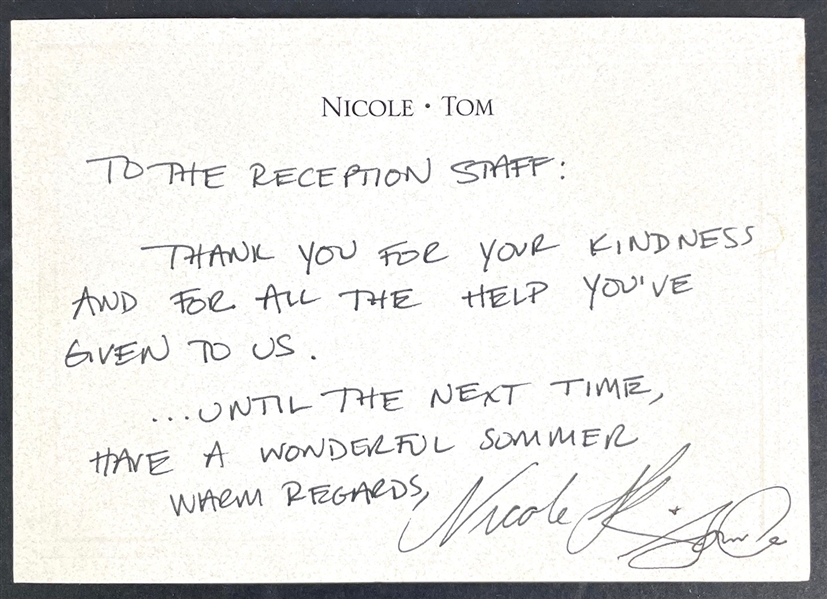 NICOLE • TOM
TO THE RECEPTION STAFF:
THANK YOU FOR YOUR KINDNESS
AND FOR ALL THE HELP YOU'VE
GIVEN TO US.
...UNTIL THE NEXT TIME,
HAVE A WONDERFUL SUMMER
WARM REGARDS,
Nicole